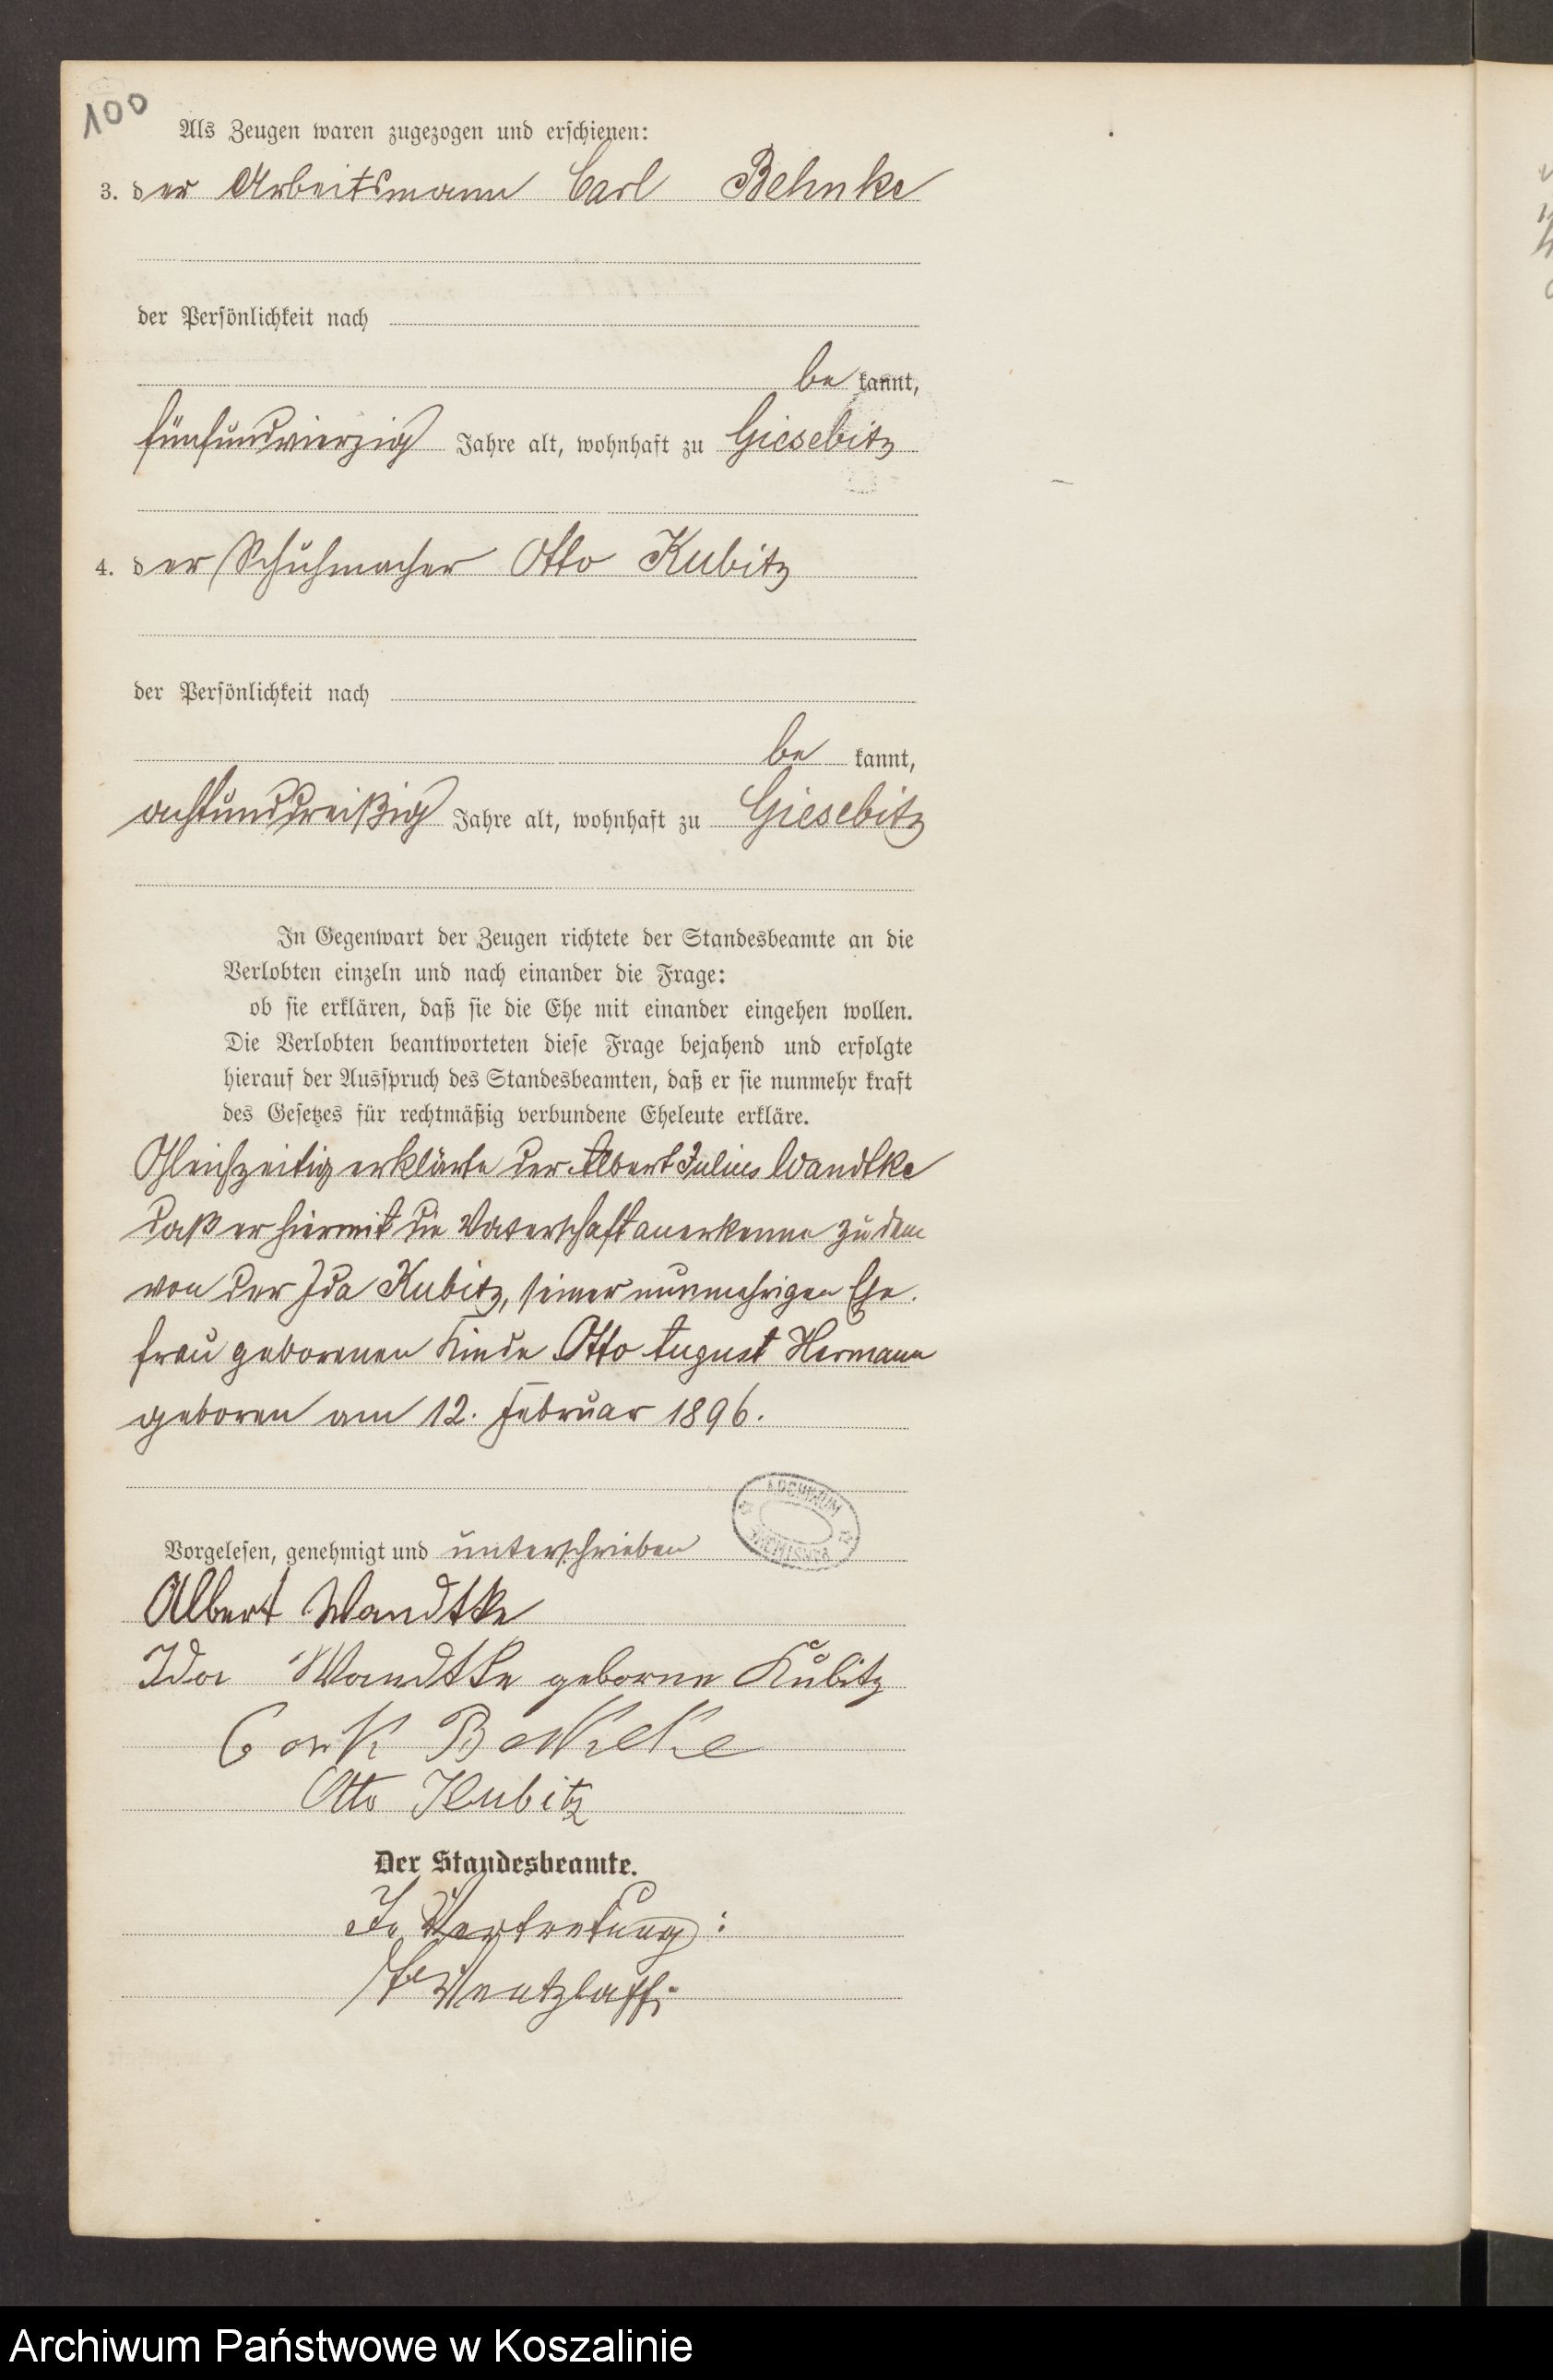 100
Als Zeugen waren zugezogen und erschienen:
3. der Arbeitsmann Carl Behnke
der Persönlichkeit nach
be kannt,
fünfundvierzig Jahre alt, wohnhaft zu Giesebitz
4. der Schuhmacher Otto Kubitz
der Persönlichkeit nach
be kannt,
achtunddreißig Jahre alt, wohnhaft zu Giesebitz
In Gegenwart der Zeugen richtete der Standesbeamte an die
Verlobten einzeln und nach einander die Frage:
ob sie erklären, daß sie die Ehe mit einander eingehen wollen.
Die Verlobten beantworteten diese Frage bejahend und erfolgte
hierauf der Ausspruch des Standesbeamten, daß er sie nunmehr kraft
des Gesetzes für rechtmäßig verbundene Eheleute erkläre.
Gleichzeitig erklärte der Albert Julius Wandtke
daß er hiermit die Vaterschaft anerkenne zu dem
von der Ida Kubitz, seiner nunmehrigen Ehe-
frau geborenen Kinde Otto August Hermann
geboren am 12. Februar 1896.
ARCHIWUM
Vorgelesen, genehmigt und unterschrieben
Albert Wandtke
Ida Wandtke geborne Kubitz
Otto Kubitz
Der Standesbeamte.
In Vertretung:
Wentzlaff.
Archiwum Państwowe w Koszalinie